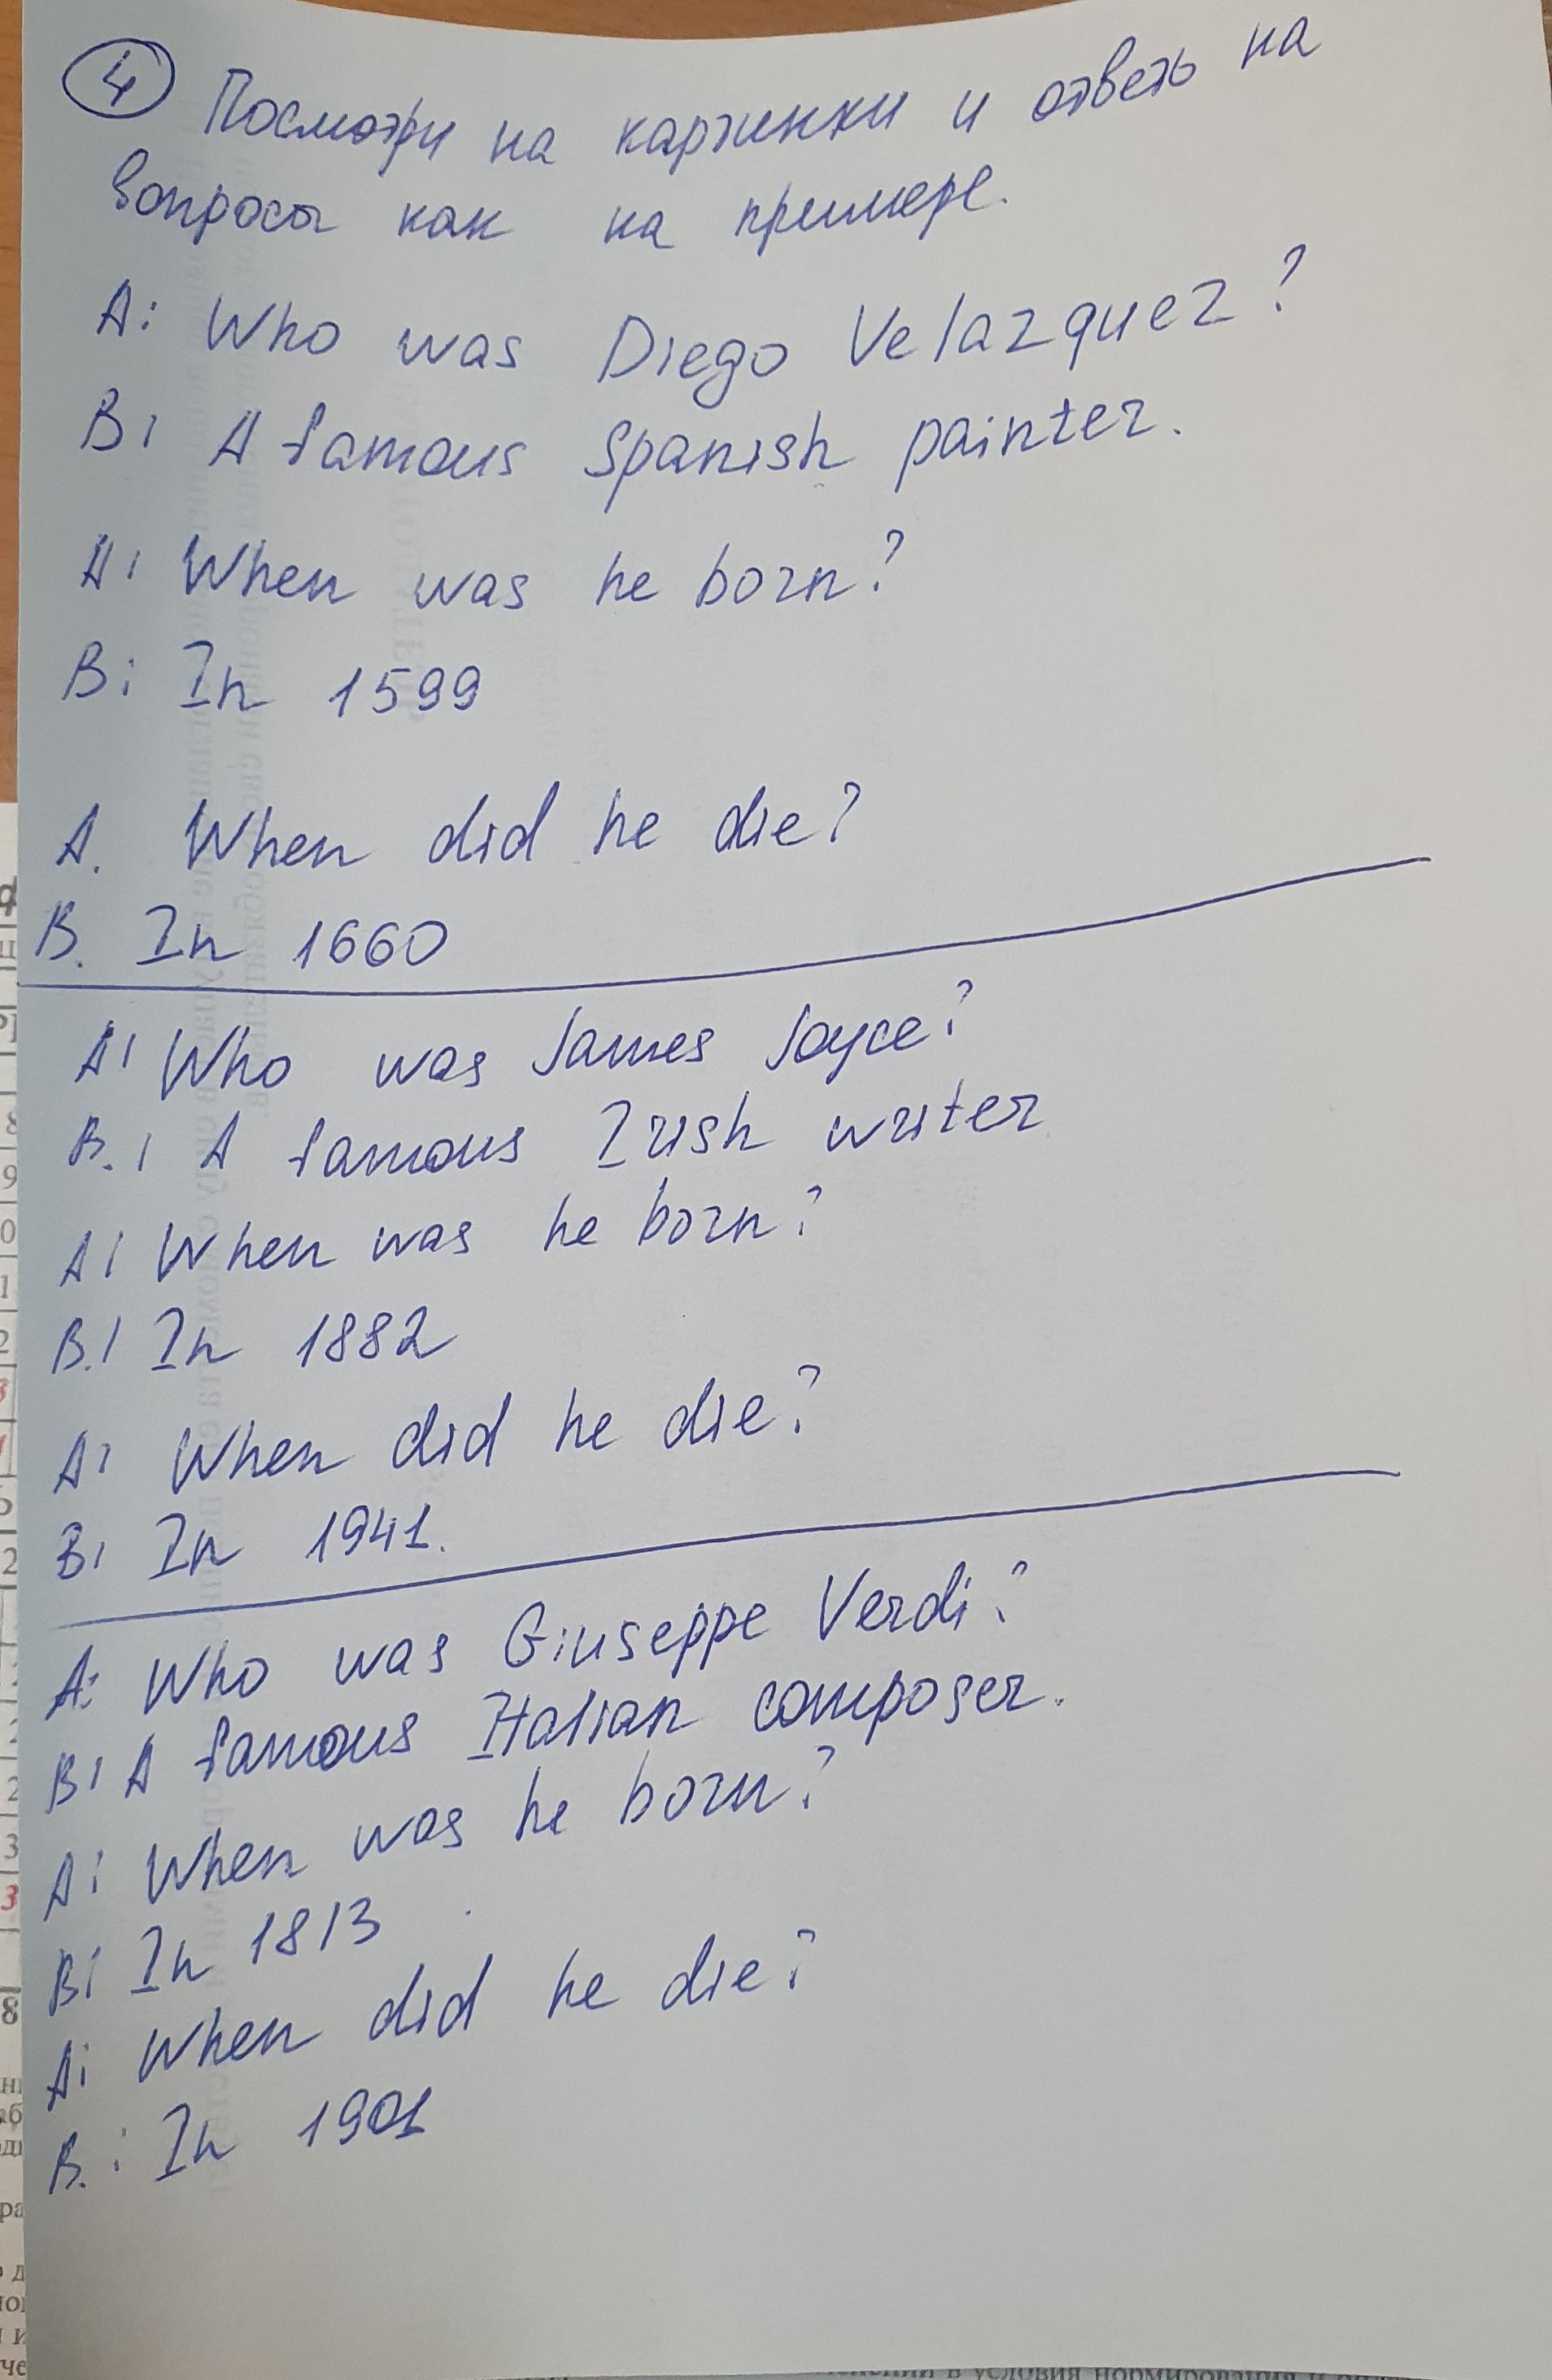 4 Посмотри на картинки и ответь на
вопросы как на примере.
A: Who was Diego Velazquez?
B: A famous Spanish painter.
A: When was he born?
B: In 1599
A. When did he die?
B. In 1660
A: Who was James Joyce?
B.: A famous Irish writer
A: When was he born?
B.: In 1882
A: When did he die?
B: In 1941.
A: Who was Giuseppe Verdi?
B: A famous Italian composer.
A: When was he born?
B: In 1813
A: When did he die?
B.: In 1901